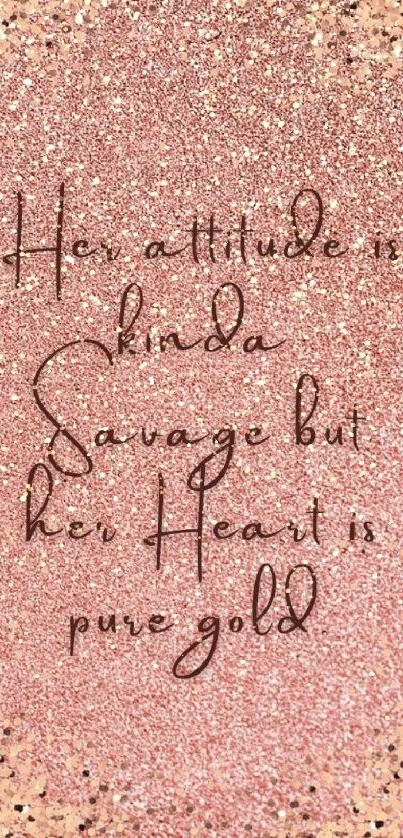 Her attitude is
kinda
Savage but
her Heart is
pure gold